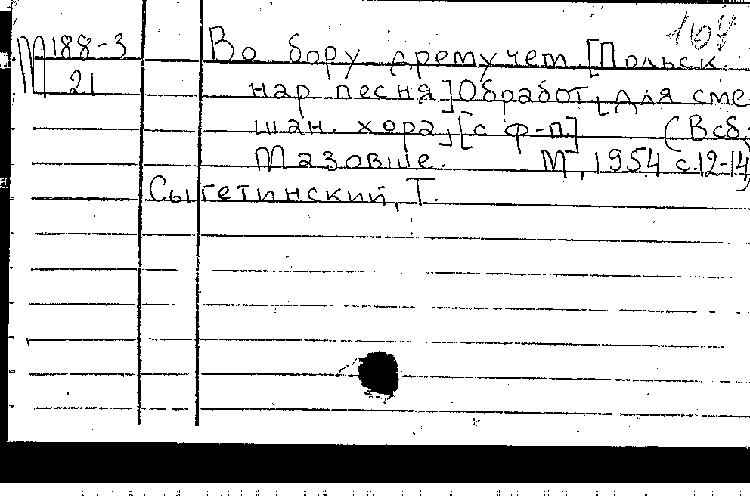 104
М 188-3 Во бору дремучем. [Польск.
21 нар песня] Обработ. [для сме
шан. хора] [с ф-п.] (В сб.
Мазовше. М., 1954 с.12-14)
Сыгетинский, Т.